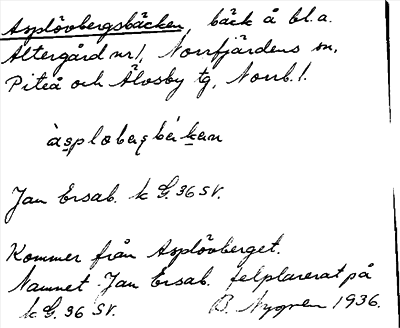 Asplövbergsbäcken, bäck å bl.a.
Altergård nr 1, Norrfjärdens sn,
Piteå och Älvsby tg, Norrb. l.
àsplobæṣbækan
Jan Ersab. k G. 36 SV.
Kommer från Asplövberget.
Namnet Jan Ersab. felplacerat på
k G. 36 SV. B. Nygren 1936.